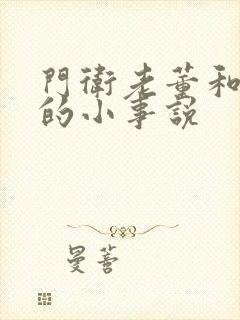 門衛老董和
的小事說
曼蓄